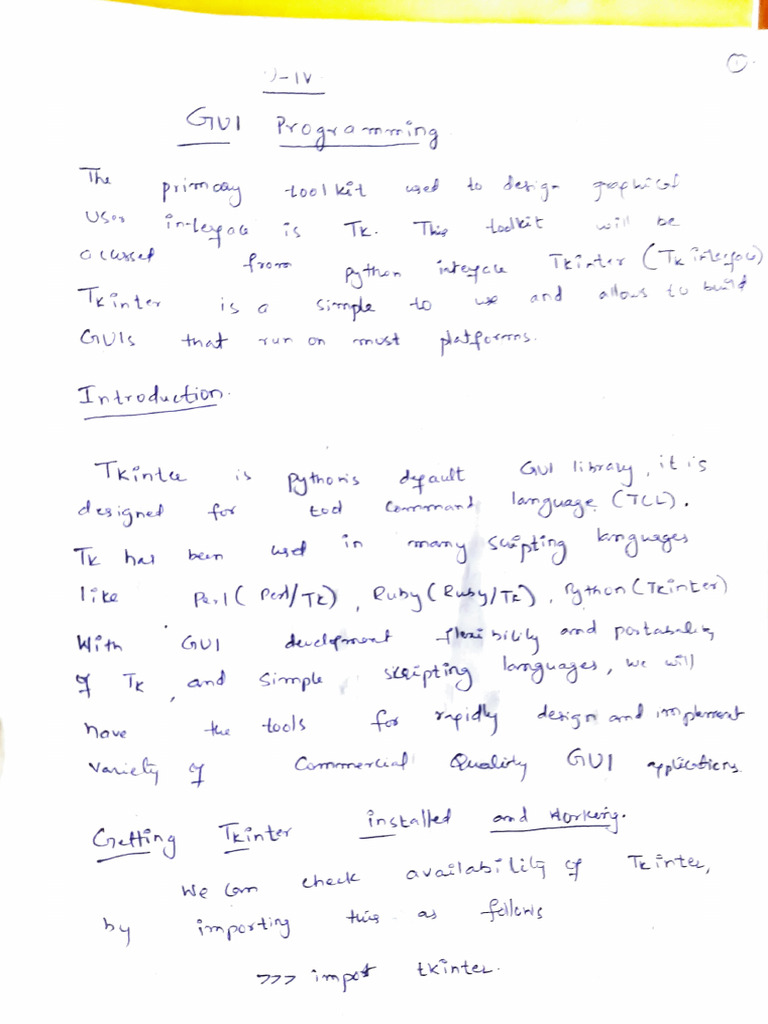 ①
U-IV
GUI Programming
The primary toolkit used to design graphical
User interface is TK. This toolkit will be
accessed from python interface Tkinter (Tk interface)
Tkinter is a simple to use and allows to build
GUIs that run on most platforms.
Introduction.
Tkinter is python's default GUI library, it is
designed for tool command language (TCL).
Tk has been used in many scripting languages
like Perl (Perl/Tk), Ruby (Ruby/Tk), Python (Tkinter)
With GUI development flexibility and portability
of TK, and Simple scripting languages, we will
have the tools for rapidly design and implement
Variety of Commercial Quality GUI applications.
Getting Tkinter installed and Working.
We can check availability of Tkinter,
by importing this as follows
>>> import tkinter.